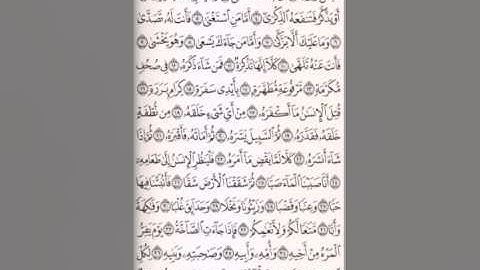 أَوْ يَذَّكَّرُ فَتَنفَعَهُ ٱلذِّكْرَىٰٓ ٤ أَمَّا مَنِ ٱسْتَغْنَىٰ ٥ فَأَنتَ لَهُۥ تَصَدَّىٰ
٦ وَمَا عَلَيْكَ أَلَّا يَزَّكَّىٰ ٧ وَأَمَّا مَن جَآءَكَ يَسْعَىٰ ٨ وَهُوَ يَخْشَىٰ ٩
فَأَنتَ عَنْهُ تَلَهَّىٰ ١٠ كَلَّآ إِنَّهَا تَذْكِرَةٌ ١١ فَمَن شَآءَ ذَكَرَهُۥ ١٢ فِى صُحُفٍ
مُّكَرَّمَةٍ ١٣ مَّرْفُوعَةٍ مُّطَهَّرَةٍۭ ١٤ بِأَيْدِى سَفَرَةٍ ١٥ كِرَامٍۭ بَرَرَةٍ ١٦
قُتِلَ ٱلْإِنسَٰنُ مَآ أَكْفَرَهُۥ ١٧ مِنْ أَىِّ شَىْءٍ خَلَقَهُۥ ١٨ مِن نُّطْفَةٍ
خَلَقَهُۥ فَقَدَّرَهُۥ ١٩ ثُمَّ ٱلسَّبِيلَ يَسَّرَهُۥ ٢٠ ثُمَّ أَمَاتَهُۥ فَأَقْبَرَهُۥ ٢١ ثُمَّ إِذَا
شَآءَ أَنشَرَهُۥ ٢٢ كَلَّا لَمَّا يَقْضِ مَآ أَمَرَهُۥ ٢٣ فَلْيَنظُرِ ٱلْإِنسَٰنُ إِلَىٰ طَعَامِهِۦٓ
٢٤ أَنَّا صَبَبْنَا ٱلْمَآءَ صَبًّا ٢٥ ثُمَّ شَقَقْنَا ٱلْأَرْضَ شَقًّا ٢٦ فَأَنۢبَتْنَا فِيهَا
حَبًّا ٢٧ وَعِنَبًا وَقَضْبًا ٢٨ وَزَيْتُونًا وَنَخْلًا ٢٩ وَحَدَآئِقَ غُلْبًا ٣٠ وَفَٰكِهَةً
وَأَبًّا ٣١ مَّتَٰعًا لَّكُمْ وَلِأَنْعَٰمِكُمْ ٣٢ فَإِذَا جَآءَتِ ٱلصَّآخَّةُ ٣٣ يَوْمَ يَفِرُّ
ٱلْمَرْءُ مِنْ أَخِيهِ ٣٤ وَأُمِّهِۦ وَأَبِيهِ ٣٥ وَصَٰحِبَتِهِۦ وَبَنِيهِ ٣٦ لِكُلِّ